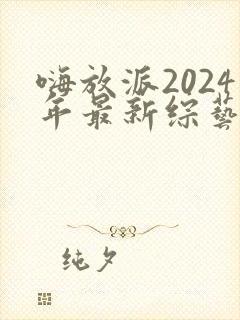 嗨放派2024
年最新综藝
纯夕